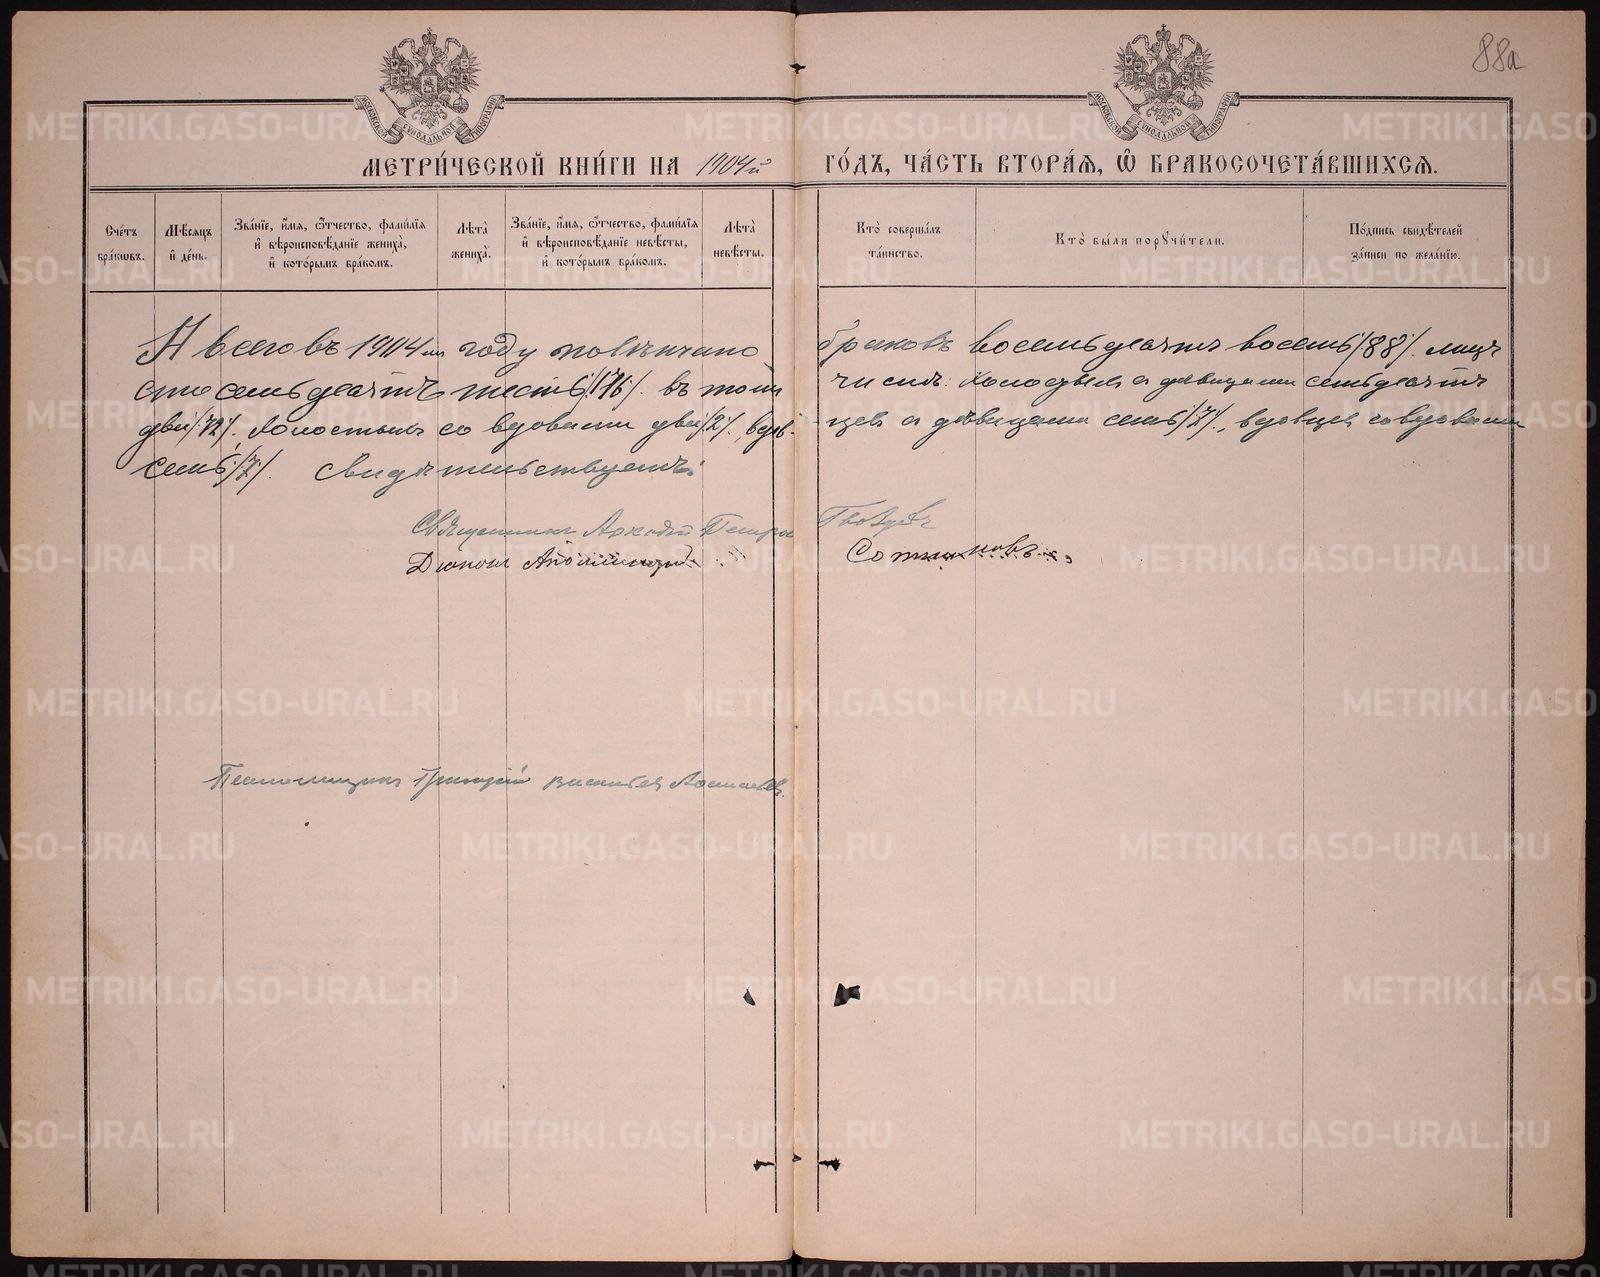 88а
МОСКОВСКОЙ СѴНОДАЛЬНОЙ ТИПОГРАФІИ
МОСКОВСКОЙ СѴНОДАЛЬНОЙ ТИПОГРАФІИ
МЕТРИ́ЧЕСКОЙ КНИ́ГИ НА 1904й ГО́ДЪ, ЧА́СТЬ ВТОРА́Ѧ, Ѽ БРАКОСОЧЕТА́ВШИХСѦ.
Сче́тъ бра́кѡвъ.
Мѣ́сѧцъ и҆ де́нь.
Зва́нїе, и҆́мѧ, ѻ҆́тчество, фами́лїѧ и҆ вѣроисповѣ́данїе жениха̀, и҆ кото́рымъ бра́комъ.
Лѣта̀ жениха̀.
Зва́нїе, и҆́мѧ, ѻ҆́тчество, фами́лїѧ и҆ вѣроисповѣ́данїе невѣ́сты, и҆ кото́рымъ бра́комъ.
Лѣта̀ невѣ́сты.
Кто̀ соверша́лъ та́инство.
Кто̀ бы́ли порꙋчи́тели.
По́дпись свидѣ́телей за́писи по жела́нїю.
А всего въ 1904 мъ году повѣнчано браковъ восемьдесятъ восемь /88/. лицъ
сто семьдесятъ шесть /176/. въ томъ числѣ: холостыхъ съ дѣвицами семьдесятъ
два /72/. Холостыхъ со вдовами два /2/, вдовцев съ дѣвицами семь /7/, вдовцев со вдовами
семь /7/. Свидѣтельствуемъ:
Священникъ Аркадій Петровъ Гвоздевъ
Діаконъ Сотниковъ
Псаломщикъ Григорій Васильев
METRIKI.GASO-URAL.RU